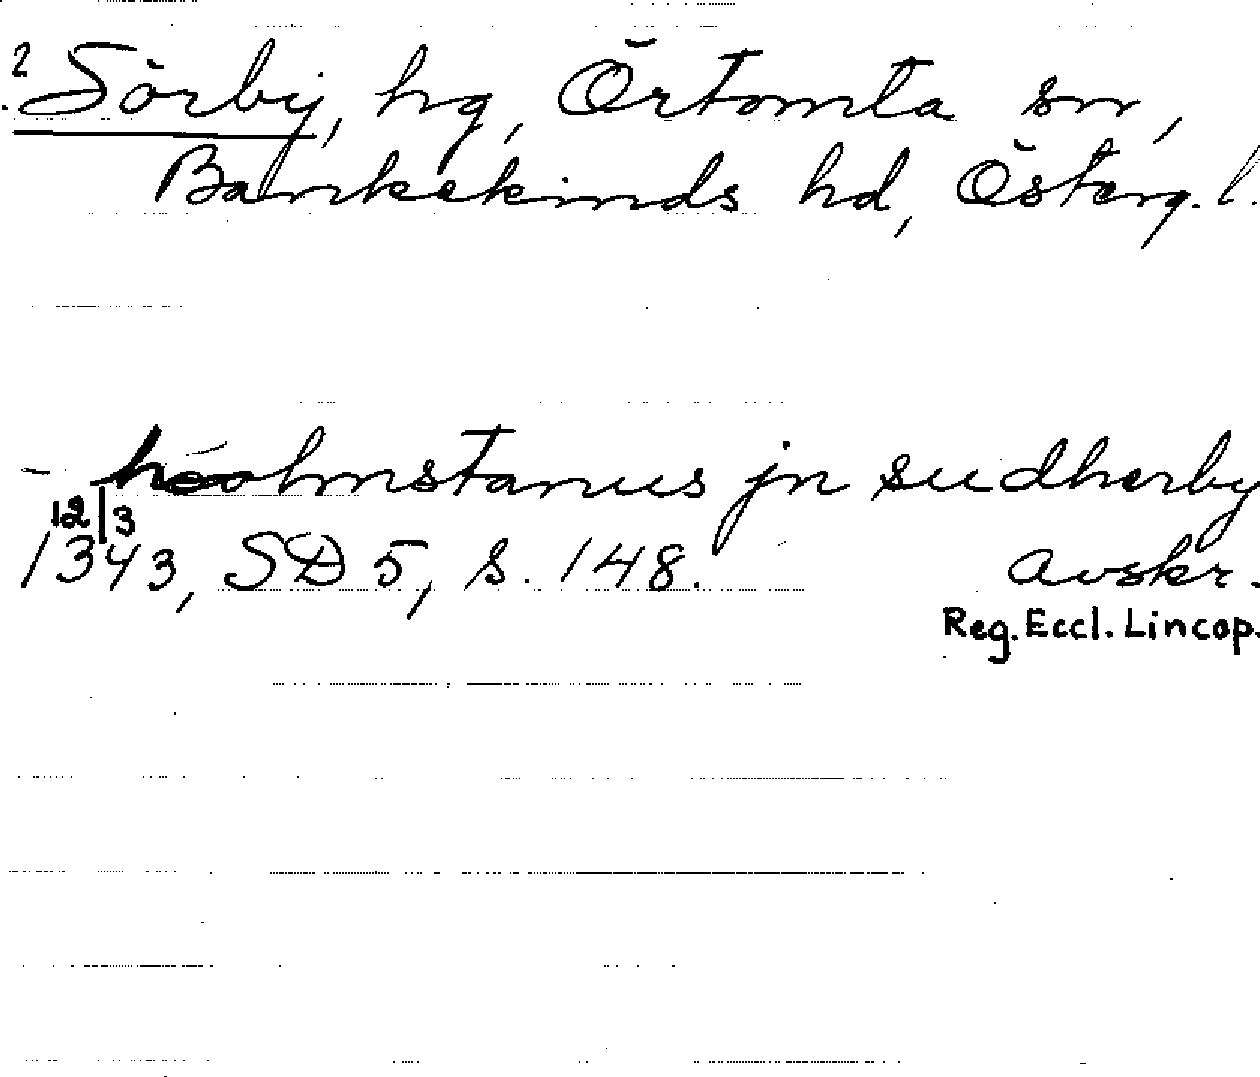 ? Sörby, hg, Örtomta sn,
Bankekinds hd, Österg. l.
- holmstanus jn sudherby
12/3
1343, SD 5, s. 148. Avskr.
Reg. Eccl. Lincop.